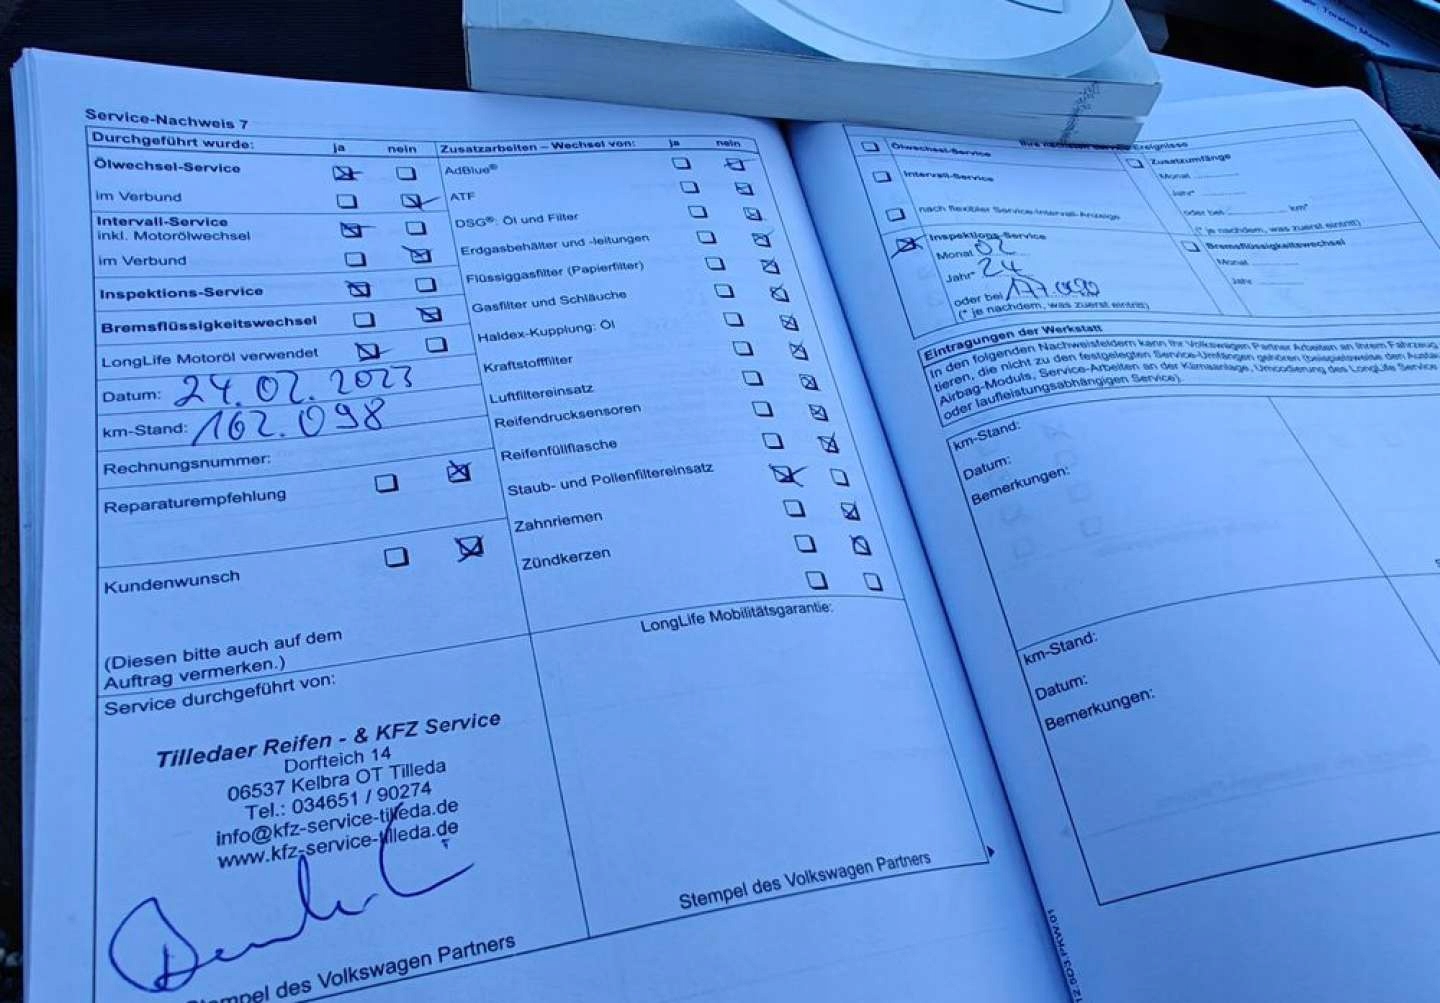 Service-Nachweis 7
Durchgeführt wurde: ja nein
Ölwechsel-Service
im Verbund
Intervall-Service
inkl. Motorölwechsel
im Verbund
Inspektions-Service
Bremsflüssigkeitswechsel
LongLife Motoröl verwendet
Datum: 24.02.2023
km-Stand: 162.098
Rechnungsnummer:
Reparaturempfehlung
Kundenwunsch
(Diesen bitte auch auf dem
Auftrag vermerken.)
Service durchgeführt von:
Tilledaer Reifen - & KFZ Service
Dorfteich 14
06537 Kelbra OT Tilleda
Tel.: 034651 / 90274
info@kfz-service-tilleda.de
www.kfz-service-tilleda.de
Stempel des Volkswagen Partners
Zusatzarbeiten – Wechsel von: ja nein
AdBlue®
ATF
DSG®: Öl und Filter
Erdgasbehälter und -leitungen
Flüssiggasfilter (Papierfilter)
Gasfilter und Schläuche
Haldex-Kupplung: Öl
Kraftstofffilter
Luftfiltereinsatz
Reifendrucksensoren
Reifenfüllflasche
Staub- und Pollenfiltereinsatz
Zahnriemen
Zündkerzen
LongLife Mobilitätsgarantie:
Stempel des Volkswagen Partners
Ihre nächsten Service-Ereignisse
Ölwechsel-Service
Intervall-Service
nach flexibler Service-Intervall-Anzeige
Inspektions-Service
Monat 02
Jahr* 24
oder bei 177.090
(* je nachdem, was zuerst eintritt)
Zusatzumfänge
Monat
Jahr*
oder bei km*
(* je nachdem, was zuerst eintritt)
Bremsflüssigkeitswechsel
Monat
Jahr
Eintragungen der Werkstatt
In den folgenden Nachweisfeldern kann Ihr Volkswagen Partner Arbeiten an Ihrem Fahrzeug
tieren, die nicht zu den festgelegten Service-Umfängen gehören (beispielsweise den Austau
Airbag-Moduls, Service-Arbeiten an der Klimaanlage, Umcodierung des LongLife Service
oder laufleistungsabhängigen Service).
km-Stand:
Datum:
Bemerkungen:
km-Stand:
Datum:
Bemerkungen: